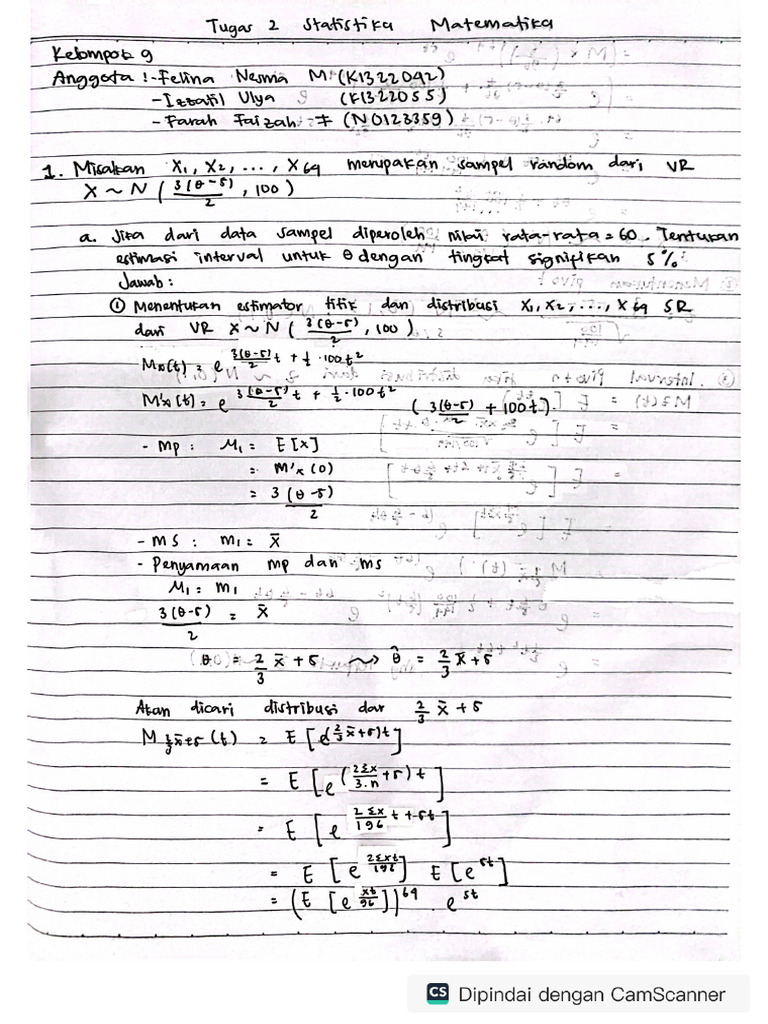 Tugas 2 Statistika Matematika
Kelompok 9
Anggota : - Felina Nesma M (K1322042)
- Izzatil Ulya (K1322055)
- Farah Faizah F (N0123359)
1. Misalkan X₁, X₂, ..., X₆₉ merupakan sampel random dari VR
X ~ N ( 3(θ-5)/2 , 100 )
a. Jika dari data sampel diperoleh nilai rata-rata = 60. Tentukan
estimasi interval untuk θ dengan tingkat signifikan 5%
Jawab :
① Menentukan estimator titik dan distribusi X₁, X₂, ..., X₆₉ SR
dari VR X ~ N ( 3(θ-5)/2 , 100 )
Mx(t) = e^(3(θ-5)/2 t + 1/2 · 100t²)
M'x(t) = e^(3(θ-5)/2 t + 1/2 · 100t²) ( 3(θ-5)/2 + 100t ).
- MP : M₁ = E[x]
= M'x(0)
= 3(θ-5)/2
- MS : m₁ = x̄
- Penyamaan mp dan ms
M₁ = m₁
3(θ-5)/2 = x̄
θ = 2/3 x̄ + 5 ~> θ̂ = 2/3 x̄ + 5
Akan dicari distribusi dar 2/3 x̄ + 5
M 2/3x̄+5 (t) = E [e^(2/3 x̄+5)t]
= E [e^(2Σx/3.n + 5)t]
= E [e^(2Σx/196 t + 5t)]
= E [e^(2Σxt/196)] E [e^5t]
= (E [e^(xt/96)])^64 . e^5t
CS Dipindai dengan CamScanner